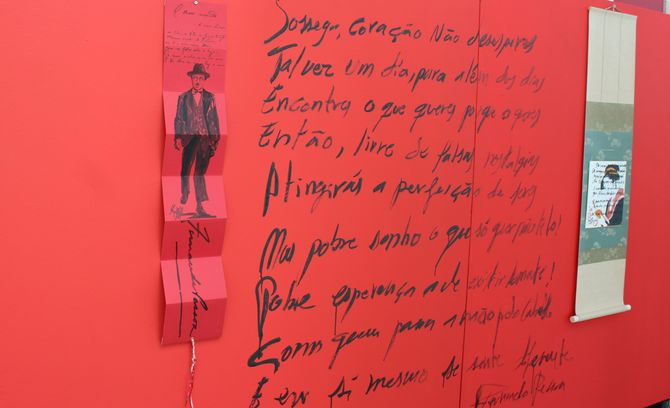 Fernando Pessoa
Sossega, coração não desesperes
Talvez um dia, para além dos dias
Encontra o que queres porque o queres
Então, livre de falsas nostalgias
Atingirás a perfeição de seres
Mas pobre sonho o que só quer não tê-lo!
Pobre esperança a de existir somente!
Como quem passa a mão pelo cabelo
E em si mesmo se sente diferente
Fernando Pessoa